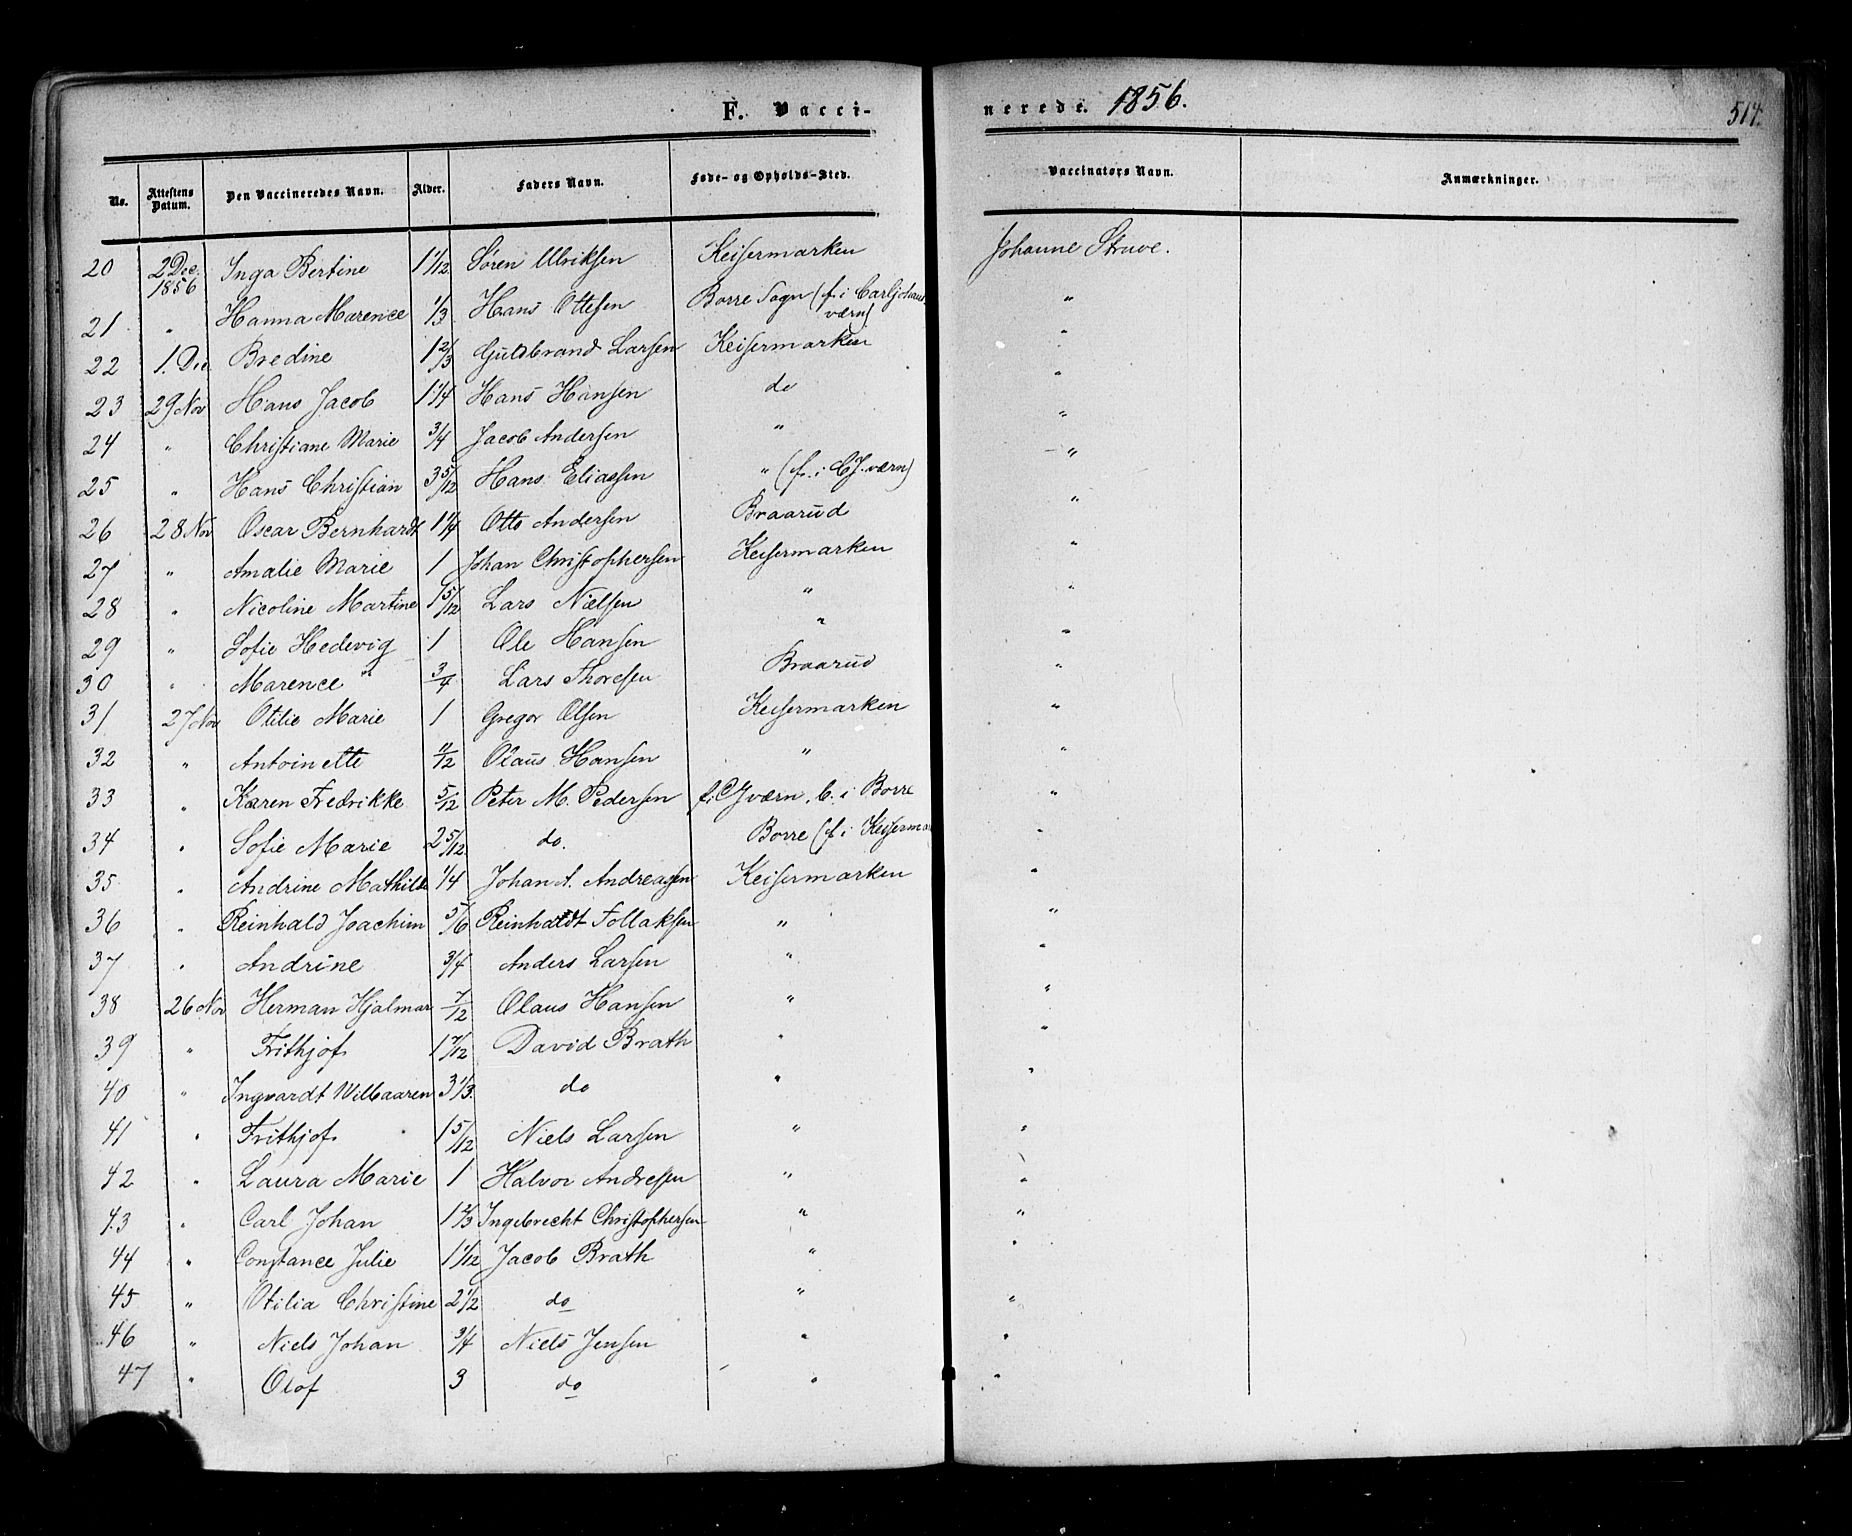 F. Vaccinerede. 1856. 514.
No. Attestens Datum. Den Vaccineredes Navn. Alder. Faders Navn. Føde- og Opholds-Sted. Vaccinators Navn. Anmærkninger.
20 2 Dec. 1856 Inga Bertine 1 1/12 Søren Ulriksen Keisermarken Johanne Struve.
21 " Hanna Marence 1/3 Hans Ottesen Borre Sogn (f. i Carljohansværn) "
22 1. Dec Bredine 1 2/3 Guldbrand Larsen Keisermarken "
23 29 Nov Hans Jacob 1 1/4 Hans Hansen do "
24 " Christiane Marie 3/4 Jacob Andersen " "
25 " Hans Christian 3 5/12 Hans Eliassen " (f. i CJ.værn) "
26 28 Nov Oscar Bernhardt 1 1/4 Otto Andersen Braarud "
27 " Amalie Marie 1 Johan Christophersen Keisermarken "
28 " Nicoline Martine 1 5/12 Lars Nielsen " "
29 " Sofie Hedevig 1 Ole Hansen " "
30 " Marence 3/4 Lars Thoresen Braarud "
31 27 Nov Otilie Marie 1 Gregor Olsen Keisermarken "
32 " Antoinette /12 Olaus Hansen " "
33 " Karen Fredrikke 5/12 Peter M. Pedersen f. i CJværn, b. i Borre "
34 " Sofie Marie 2 5/12 do. Borre (f. i Keiserma "
35 " Andrine Mathilde 1/4 Johan A. Andreassen Keisermarken "
36 " Reinhald Joachim 5/6 Reinhaldt Follaksen " "
37 " Andrine 3/4 Anders Larsen " "
38 26 Nov Herman Hjalmar 7/12 Olaus Hansen " "
39 " Frithjof 1 7/12 David Brath " "
40 " Ingvardt Wilbaaren 3 1/3 do " "
41 " Frithjof 1 5/12 Niels Larsen " "
42 " Laura Marie 1 Halvor Andresen " "
43 " Carl Johan 1 2/3 Ingebrecht Christophersen " "
44 " Constance Julie 1 1/12 Jacob Brath " "
45 " Otilia Christine 2 1/2 do " "
46 " Niels Johan 3/4 Niels Jensen " "
47 " Olof 3 do " "